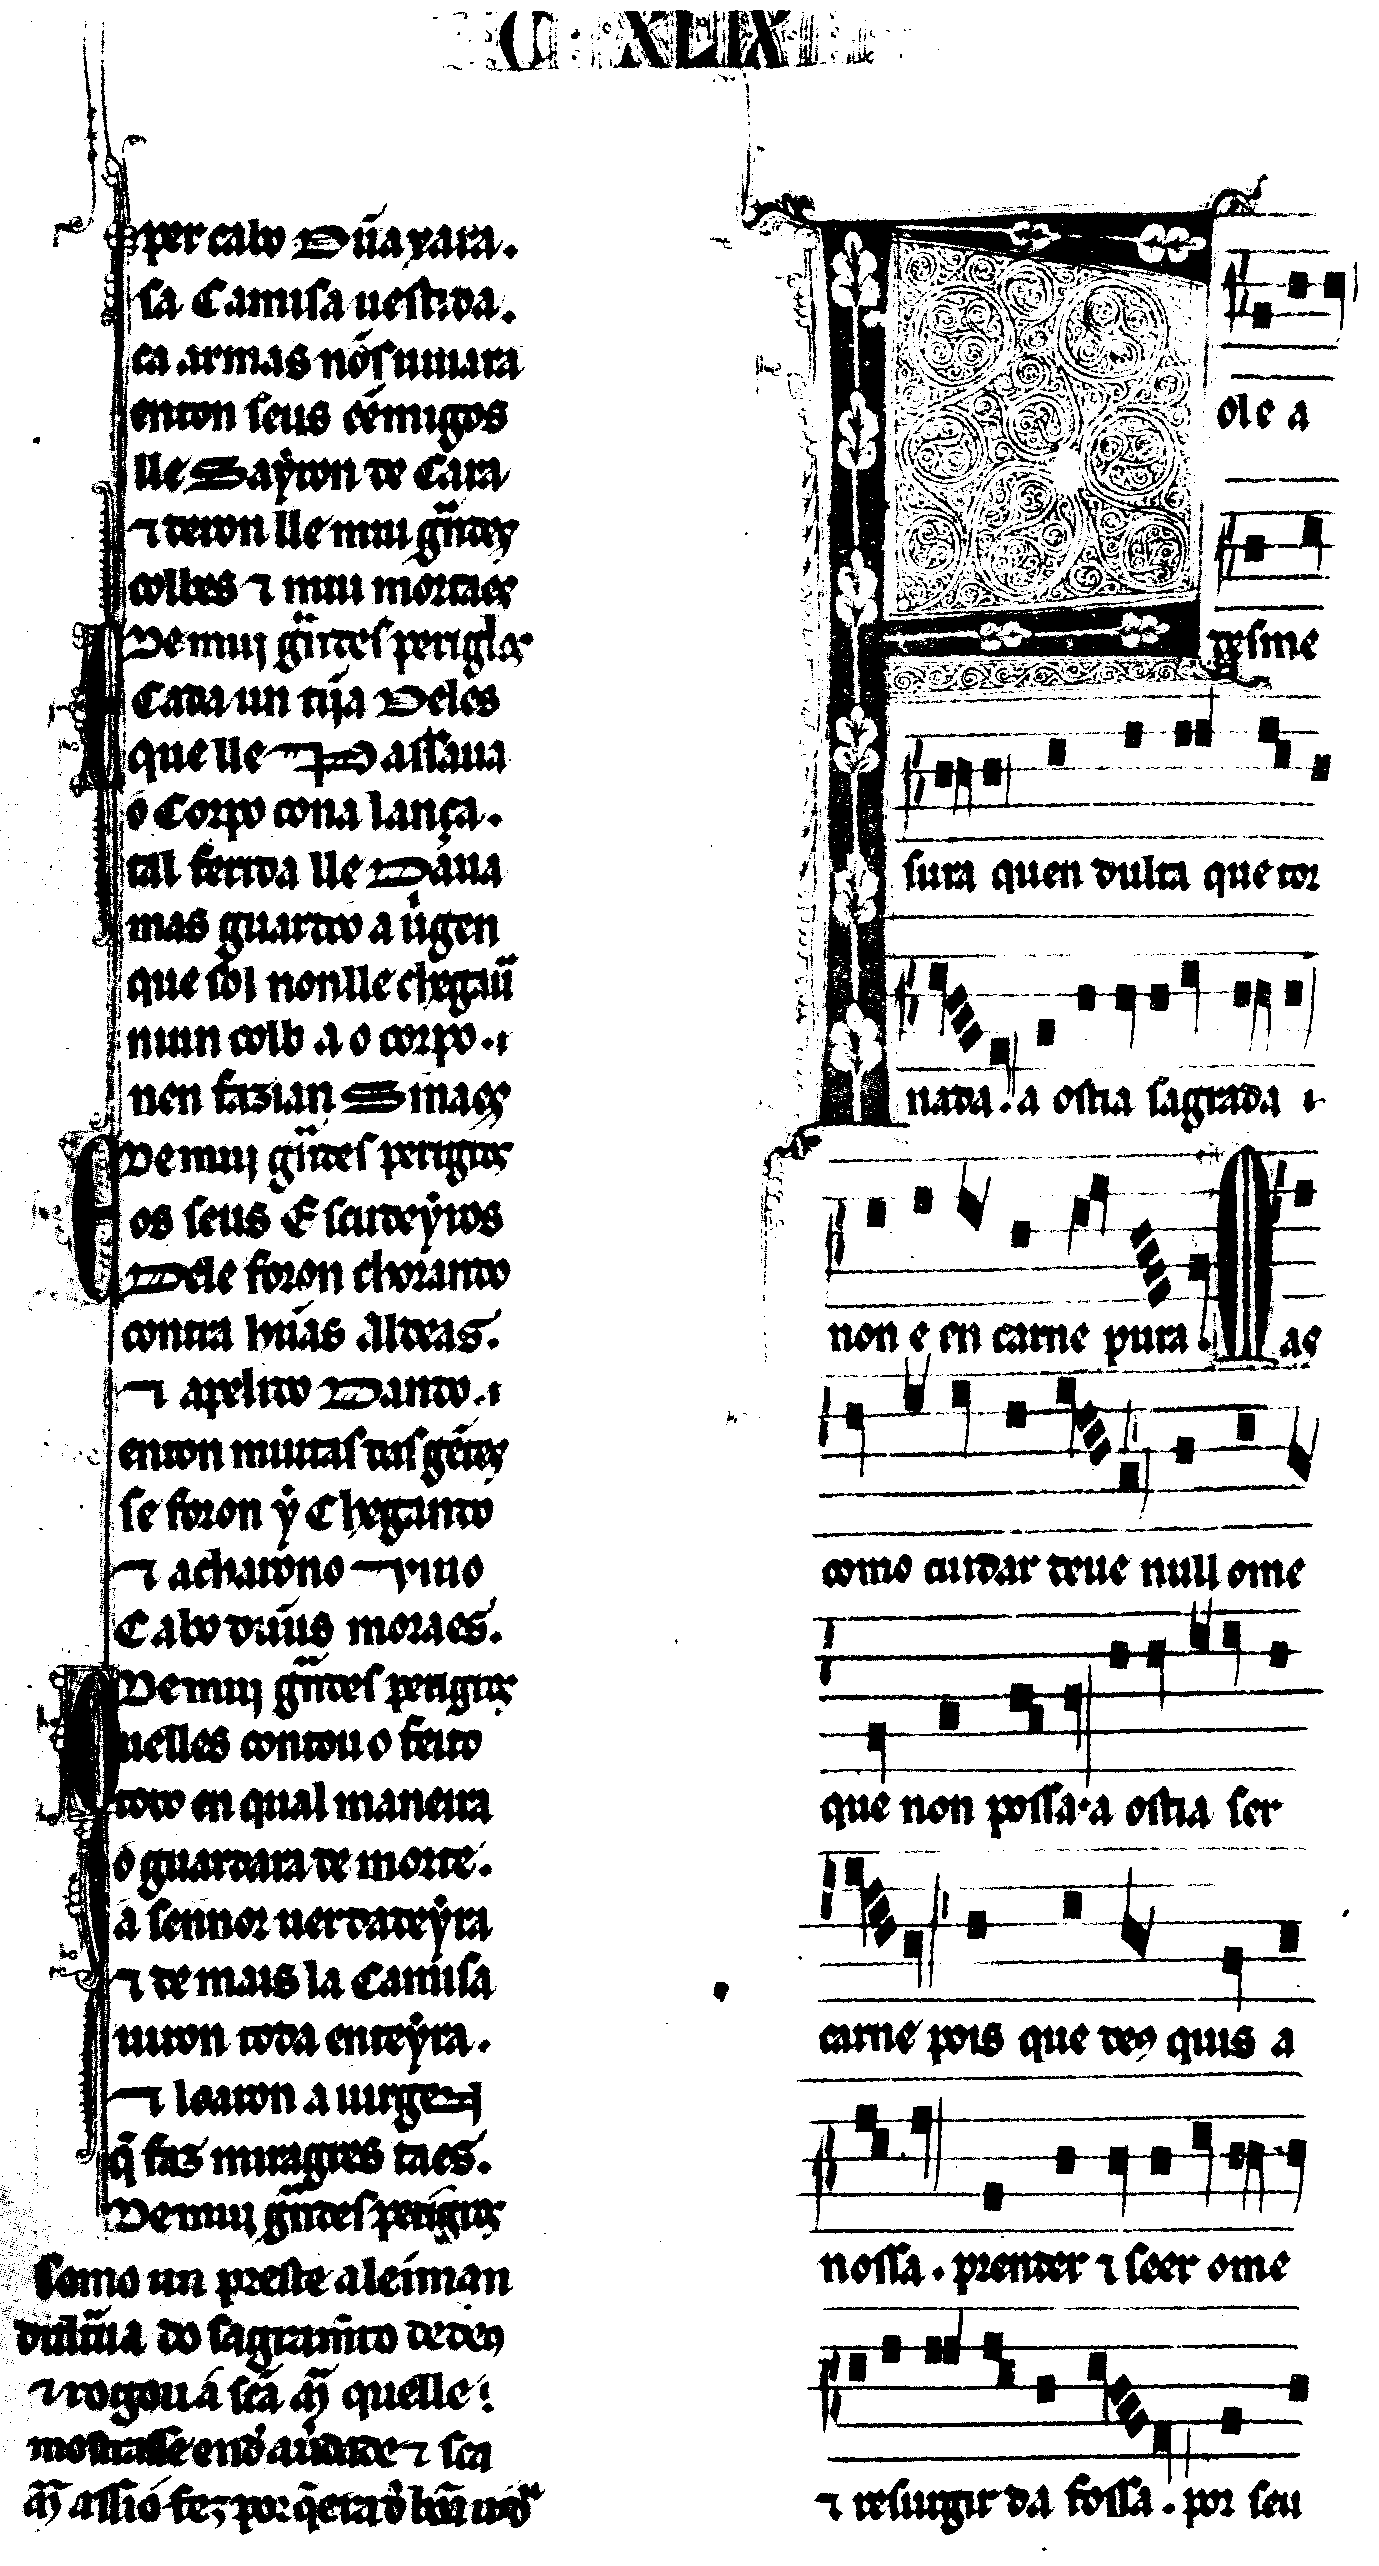 C XLIX
per cabo Dũa xara.
sa Camisa uestida.
ca armas nõ ſ uiuiara
enton seus ẽemigos
lle Sayron de Cara
⁊ deron lle mui gñdes
colbes ⁊ mui mortaes
De mui gñdes perigos
Cada un tija Deles
que lle Passaua
o Corpo cona lança.
tal ferida lle Daua
mas guardoo a uigen
que sol nonlle chegaũ
niun colb a o corpo.
nen fazian Sinaes
De mui gñdes perigos
os seus Escudeyros
Dele foron chorando
contra hũas Aldeas.
⁊ apelido Dando.
enton muitas das gẽtes
se foron ỳ Chegando
⁊ acharono uiuo
Cabo dũus moraes.
De mui gñdes perigos
uelles contou o feito
todo en qual maneira
o guardara de morte.
a sennor uerdadeyra
⁊ de mais la Camisa
uiron toda enteyra.
⁊ loaron a uirgen
q̃ faz miragres taes.
De mui gñdes perigos
Como un preste aleiman
dultãua do sagramẽto de deus
⁊ rogou a scã mã quelle
mostrasse end a uerdade ⁊ sca
mã assio fez por q̃ era d bõa uida
ole a
desme
sura quen dulta que tor
nada. a ostia sagrada
non e en carne pura. Mae
como cuidar deue null ome
que non possa. a ostia ser
carne pois que deus quis a
nossa. prender ⁊ seer ome
⁊ resurgir da fossa. por seu